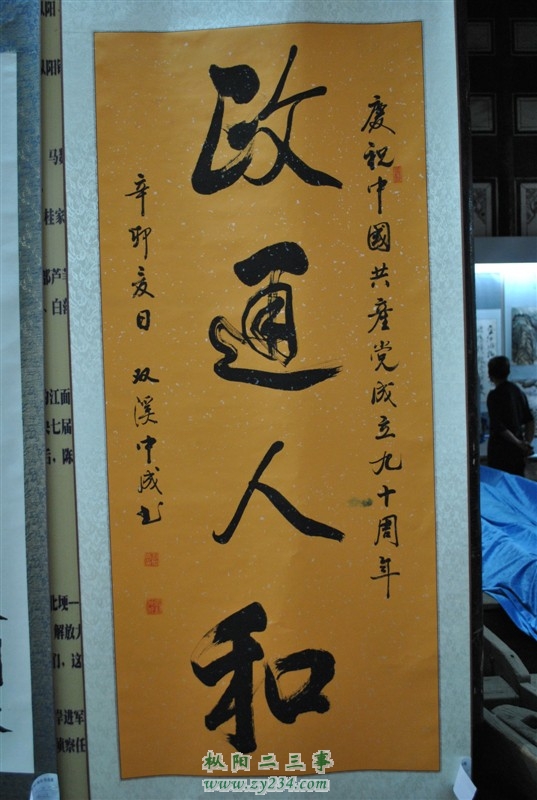 慶祝中國共產党成立九十周年
政通人和
辛卯夏日 双溪中成书
枞阳
马
桂家
白
江面
七届
后，陈
北埂一
解放
们，这
进军
侦察任
枞阳二三事
www.zy234.com